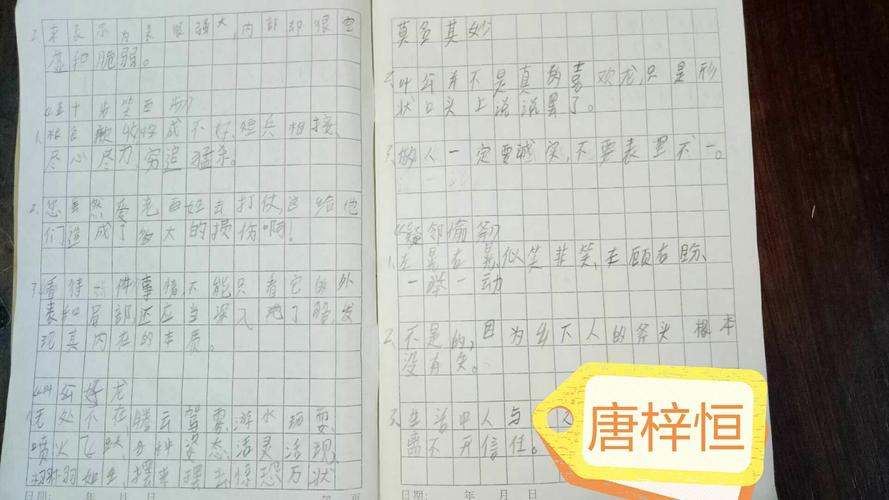 2、来表示为表里强大,内部却很空
虚和脆弱。
《五十步笑百步》
1、粮食歉收收成不好,短兵相接、
尽心尽力,穷追猛杀。
2、您虽然爱 百姓去打仗,这给他
们造成了多大的损伤啊!
3、看待一件事情,不能只看它的外
表和局部,还应当深入地了解,发
现其内在的本质。
《叶公好龙》
无处不在,腾云驾雾,游水玩耍、
喷火飞跃,多种姿态活灵活现,
栩栩如生,摆来摆去,惊恐万状
日期: 年 月 日 页
莫名其妙
2、叶公并不是真的喜欢龙,只是形
状口头上说说罢了。
3、做人一定要诚实,不要表里不一。
《疑邻偷斧》
1、左晃右晃,似笑非笑,左顾右盼、
一举一动
2、不是的,因为乡下人的斧头根本
没有失。
3、生活中人与
离不开信任。
日期: 年 月 日
唐梓恒